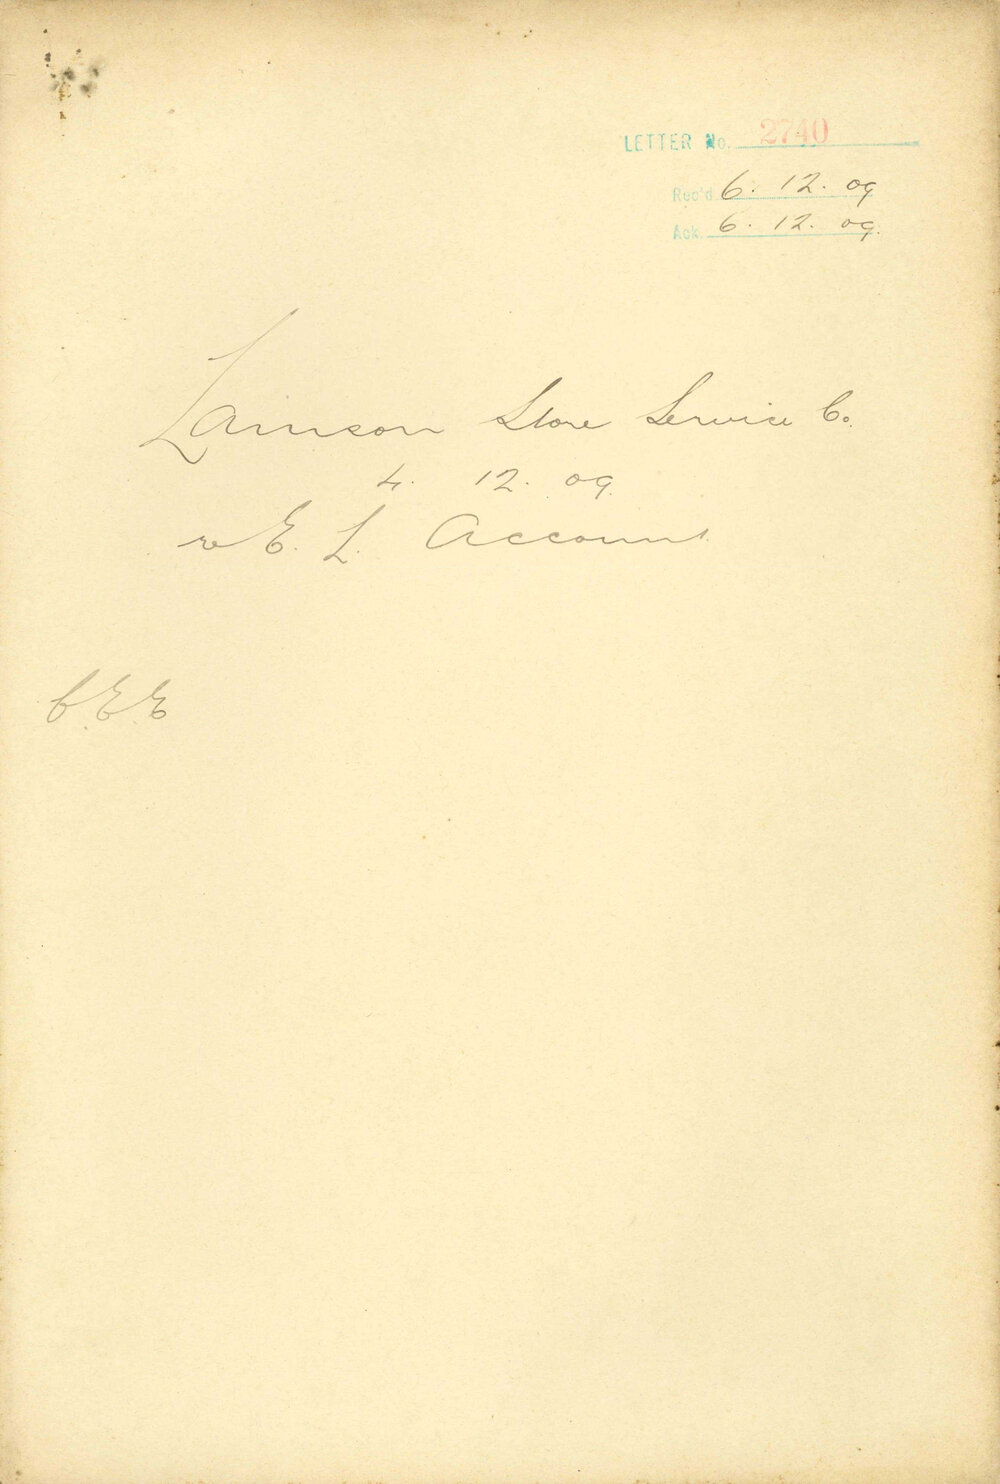 LETTER No. 2740
Rec'd 6. 12. 09
Ack. 6. 12. 09.
Lamson Store Service Co.
4. 12. 09.
re E. L. Account.
C.E.E